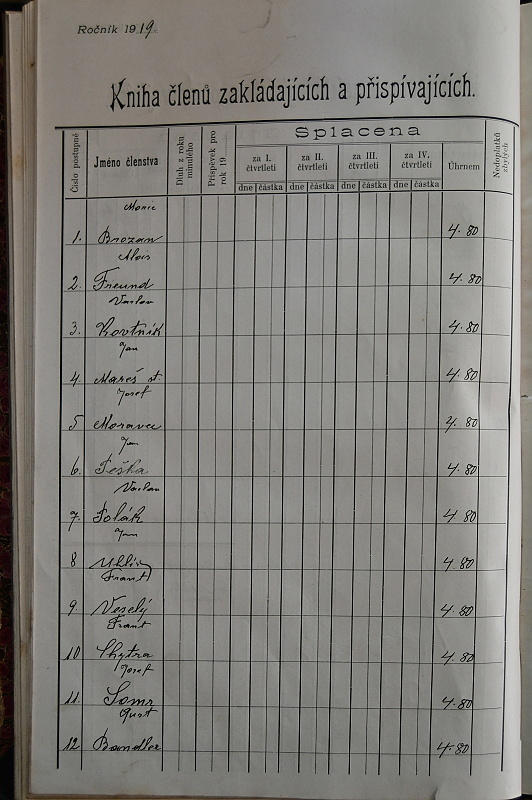 Ročník 1919.
Kniha členů zakládajících a přispívajících.
Číslo postupné
Jméno členstva
Dluh z roku minulého
Příspěvek pro rok 19
Splacena
za I. čtvrtletí
za II. čtvrtletí
za III. čtvrtletí
za IV. čtvrtletí
Úhrnem
Nedoplatků zbylých
dne částka dne částka dne částka dne částka
Moric
1. Brozan 4.80
Alois
2. Freund 4.80
Václav
3. Kovtník 4.80
Jan
4. Mareš st. 4.80
Josef
5 Moravec 4.80
Jan
6. Peška 4.80
Václav
7. Polák 4.80
Jan
8 Uhlíř 4.80
Frant
9. Veselý 4.80
Frant
10 Chytra 4.80
Josef
11. 4.80
12 Bandler 4.80